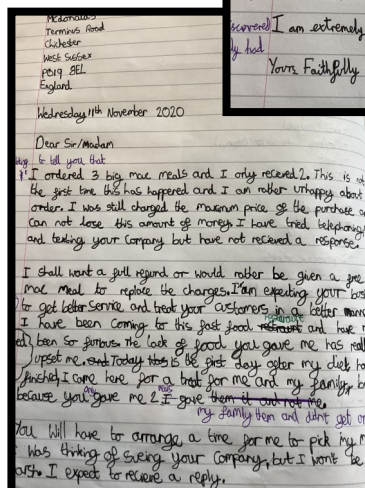 McDonalds
Terminus Road
Chichester
West Sussex
PO19 8EL
England
Wednesday 11th November 2020
Dear Sir/Madam
to tell you that
I ordered 3 big mac meals and I only recieved 2. This is not
the first time this has happened and I am rather unhappy about
order. I was still charged the maximum price of the purchase
can not lose this amount of money. I have tried telephoning
and texting your company but have not recieved a response.
I shall want a full refund or would rather be given a free
mac meal to replace the charges. I am expecting your
to get better service and treat your customers in a better
restaurant
I have been coming to this fast food and have
been so furious. The lack of food you gave me has
upset me. Today is the first day after my diet
finished, I came here for a treat for me and my family,
because you only gave me 2 I gave them it and not me.
my family them and didnt get
You will have to arrange a time for me to pick my
Was thinking of sueing your company, but I wont be
harsh. I expect to recieve a reply.
I am extremely
Yours Faithfully